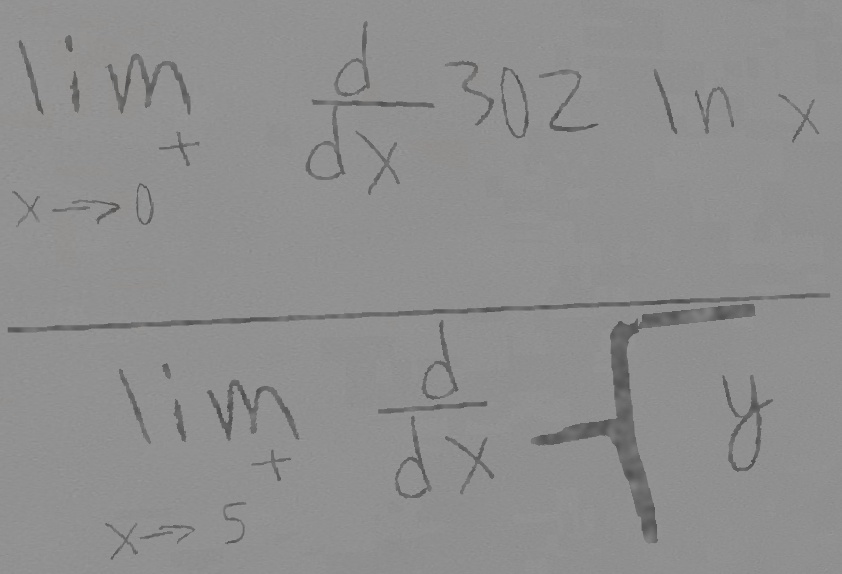 lim x→0⁺ d/dx 302 ln x
lim x→5⁺ d/dx √y